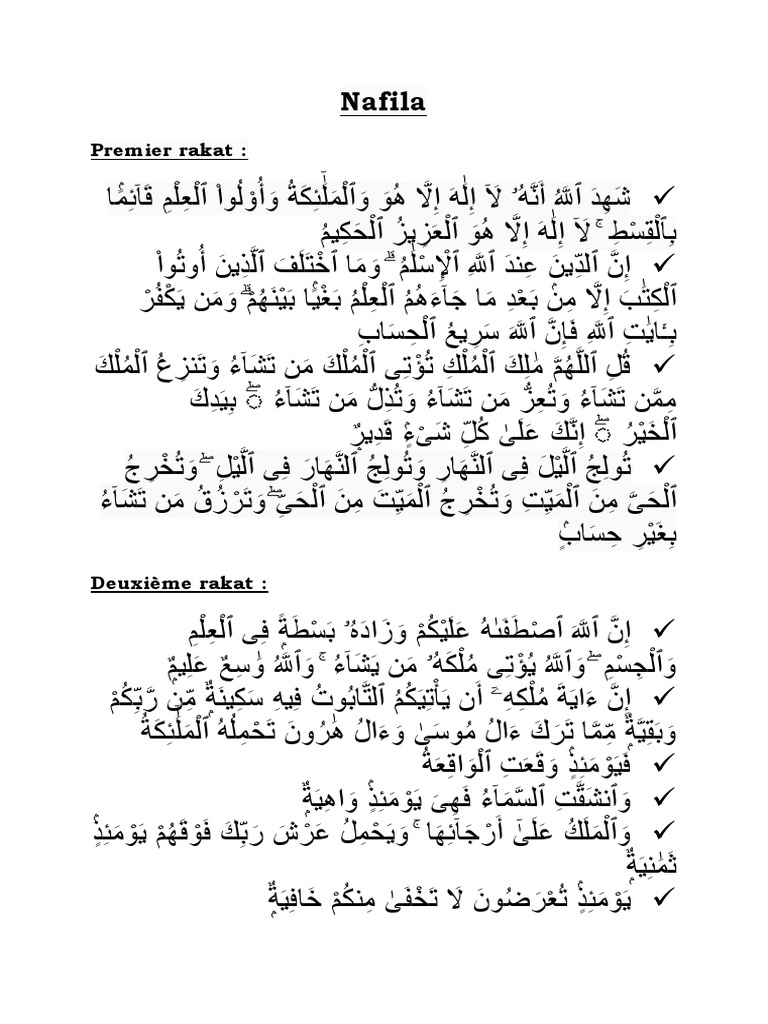 Nafila
Premier rakat :
✓ شَهِدَ ٱللَّهُ أَنَّهُۥ لَآ إِلَٰهَ إِلَّا هُوَ وَٱلْمَلَٰٓئِكَةُ وَأُو۟لُوا۟ ٱلْعِلْمِ قَآئِمًۢا
بِٱلْقِسْطِ ۚ لَآ إِلَٰهَ إِلَّا هُوَ ٱلْعَزِيزُ ٱلْحَكِيمُ
✓ إِنَّ ٱلدِّينَ عِندَ ٱللَّهِ ٱلْإِسْلَٰمُ ۗ وَمَا ٱخْتَلَفَ ٱلَّذِينَ أُوتُوا۟
ٱلْكِتَٰبَ إِلَّا مِنۢ بَعْدِ مَا جَآءَهُمُ ٱلْعِلْمُ بَغْيًۢا بَيْنَهُمْ ۗ وَمَن يَكْفُرْ
بِـَٔايَٰتِ ٱللَّهِ فَإِنَّ ٱللَّهَ سَرِيعُ ٱلْحِسَابِ
✓ قُلِ ٱللَّهُمَّ مَٰلِكَ ٱلْمُلْكِ تُؤْتِى ٱلْمُلْكَ مَن تَشَآءُ وَتَنزِعُ ٱلْمُلْكَ
مِمَّن تَشَآءُ وَتُعِزُّ مَن تَشَآءُ وَتُذِلُّ مَن تَشَآءُ ۖ بِيَدِكَ
ٱلْخَيْرُ ۖ إِنَّكَ عَلَىٰ كُلِّ شَىْءٍۢ قَدِيرٌۭ
✓ تُولِجُ ٱلَّيْلَ فِى ٱلنَّهَارِ وَتُولِجُ ٱلنَّهَارَ فِى ٱلَّيْلِ ۖ وَتُخْرِجُ
ٱلْحَىَّ مِنَ ٱلْمَيِّتِ وَتُخْرِجُ ٱلْمَيِّتَ مِنَ ٱلْحَىِّ ۖ وَتَرْزُقُ مَن تَشَآءُ
بِغَيْرِ حِسَابٍۢ
Deuxième rakat :
✓ إِنَّ ٱللَّهَ ٱصْطَفَىٰهُ عَلَيْكُمْ وَزَادَهُۥ بَسْطَةًۭ فِى ٱلْعِلْمِ
وَٱلْجِسْمِ ۖ وَٱللَّهُ يُؤْتِى مُلْكَهُۥ مَن يَشَآءُ ۚ وَٱللَّهُ وَٰسِعٌ عَلِيمٌۭ
✓ إِنَّ ءَايَةَ مُلْكِهِۦٓ أَن يَأْتِيَكُمُ ٱلتَّابُوتُ فِيهِ سَكِينَةٌۭ مِّن رَّبِّكُمْ
وَبَقِيَّةٌۭ مِّمَّا تَرَكَ ءَالُ مُوسَىٰ وَءَالُ هَٰرُونَ تَحْمِلُهُ ٱلْمَلَٰٓئِكَةُ
✓ فَيَوْمَئِذٍۢ وَقَعَتِ ٱلْوَاقِعَةُ
✓ وَٱنشَقَّتِ ٱلسَّمَآءُ فَهِىَ يَوْمَئِذٍۢ وَاهِيَةٌۭ
✓ وَٱلْمَلَكُ عَلَىٰٓ أَرْجَآئِهَا ۚ وَيَحْمِلُ عَرْشَ رَبِّكَ فَوْقَهُمْ يَوْمَئِذٍۢ
ثَمَٰنِيَةٌۭ
✓ يَوْمَئِذٍۢ تُعْرَضُونَ لَا تَخْفَىٰ مِنكُمْ خَافِيَةٌۭ